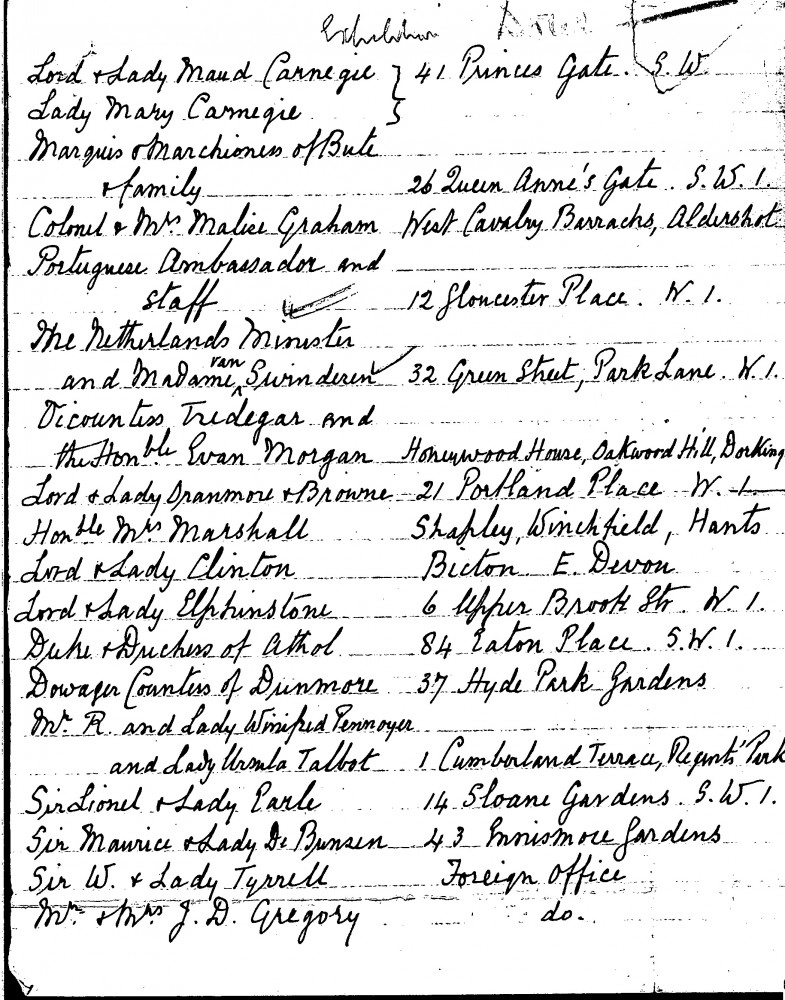 Exhibition
Lord & Lady Maud Carnegie } 41 Princes Gate. S.W.
Lady Mary Carnegie }
Marquis & Marchioness of Bute
& family 26 Queen Anne's Gate. S.W.1.
Colonel & Mrs Malise Graham West Cavalry Barracks, Aldershot
Portuguese Ambassador and
staff 12 Gloucester Place. W.1.
The Netherlands Minister
and Madame van Swinderen 32 Green Street, Park Lane. W.1.
Vicountess Tredegar and
the Honble Evan Morgan Honeywood House, Oakwood Hill, Dorking
Lord & Lady Oranmore & Browne 21 Portland Place W.1
Honble Mrs Marshall Shapley, Winchfield, Hants
Lord & Lady Clinton Bicton E. Devon
Lord & Lady Elphinstone 6 Upper Brook Str. W.1.
Duke & Duchess of Athol 84 Eaton Place. S.W.1.
Dowager Countess of Dunmore 37 Hyde Park Gardens
Mr R. and Lady Winifred Pennoyer
and Lady Ursula Talbot 1 Cumberland Terrace, Regents' Park
Sir Lionel & Lady Earle 14 Sloane Gardens. S.W.1.
Sir Maurice & Lady De Bunsen 43 Ennismore Gardens
Sir W. & Lady Tyrrell Foreign Office
Mr & Mrs J. D. Gregory do.